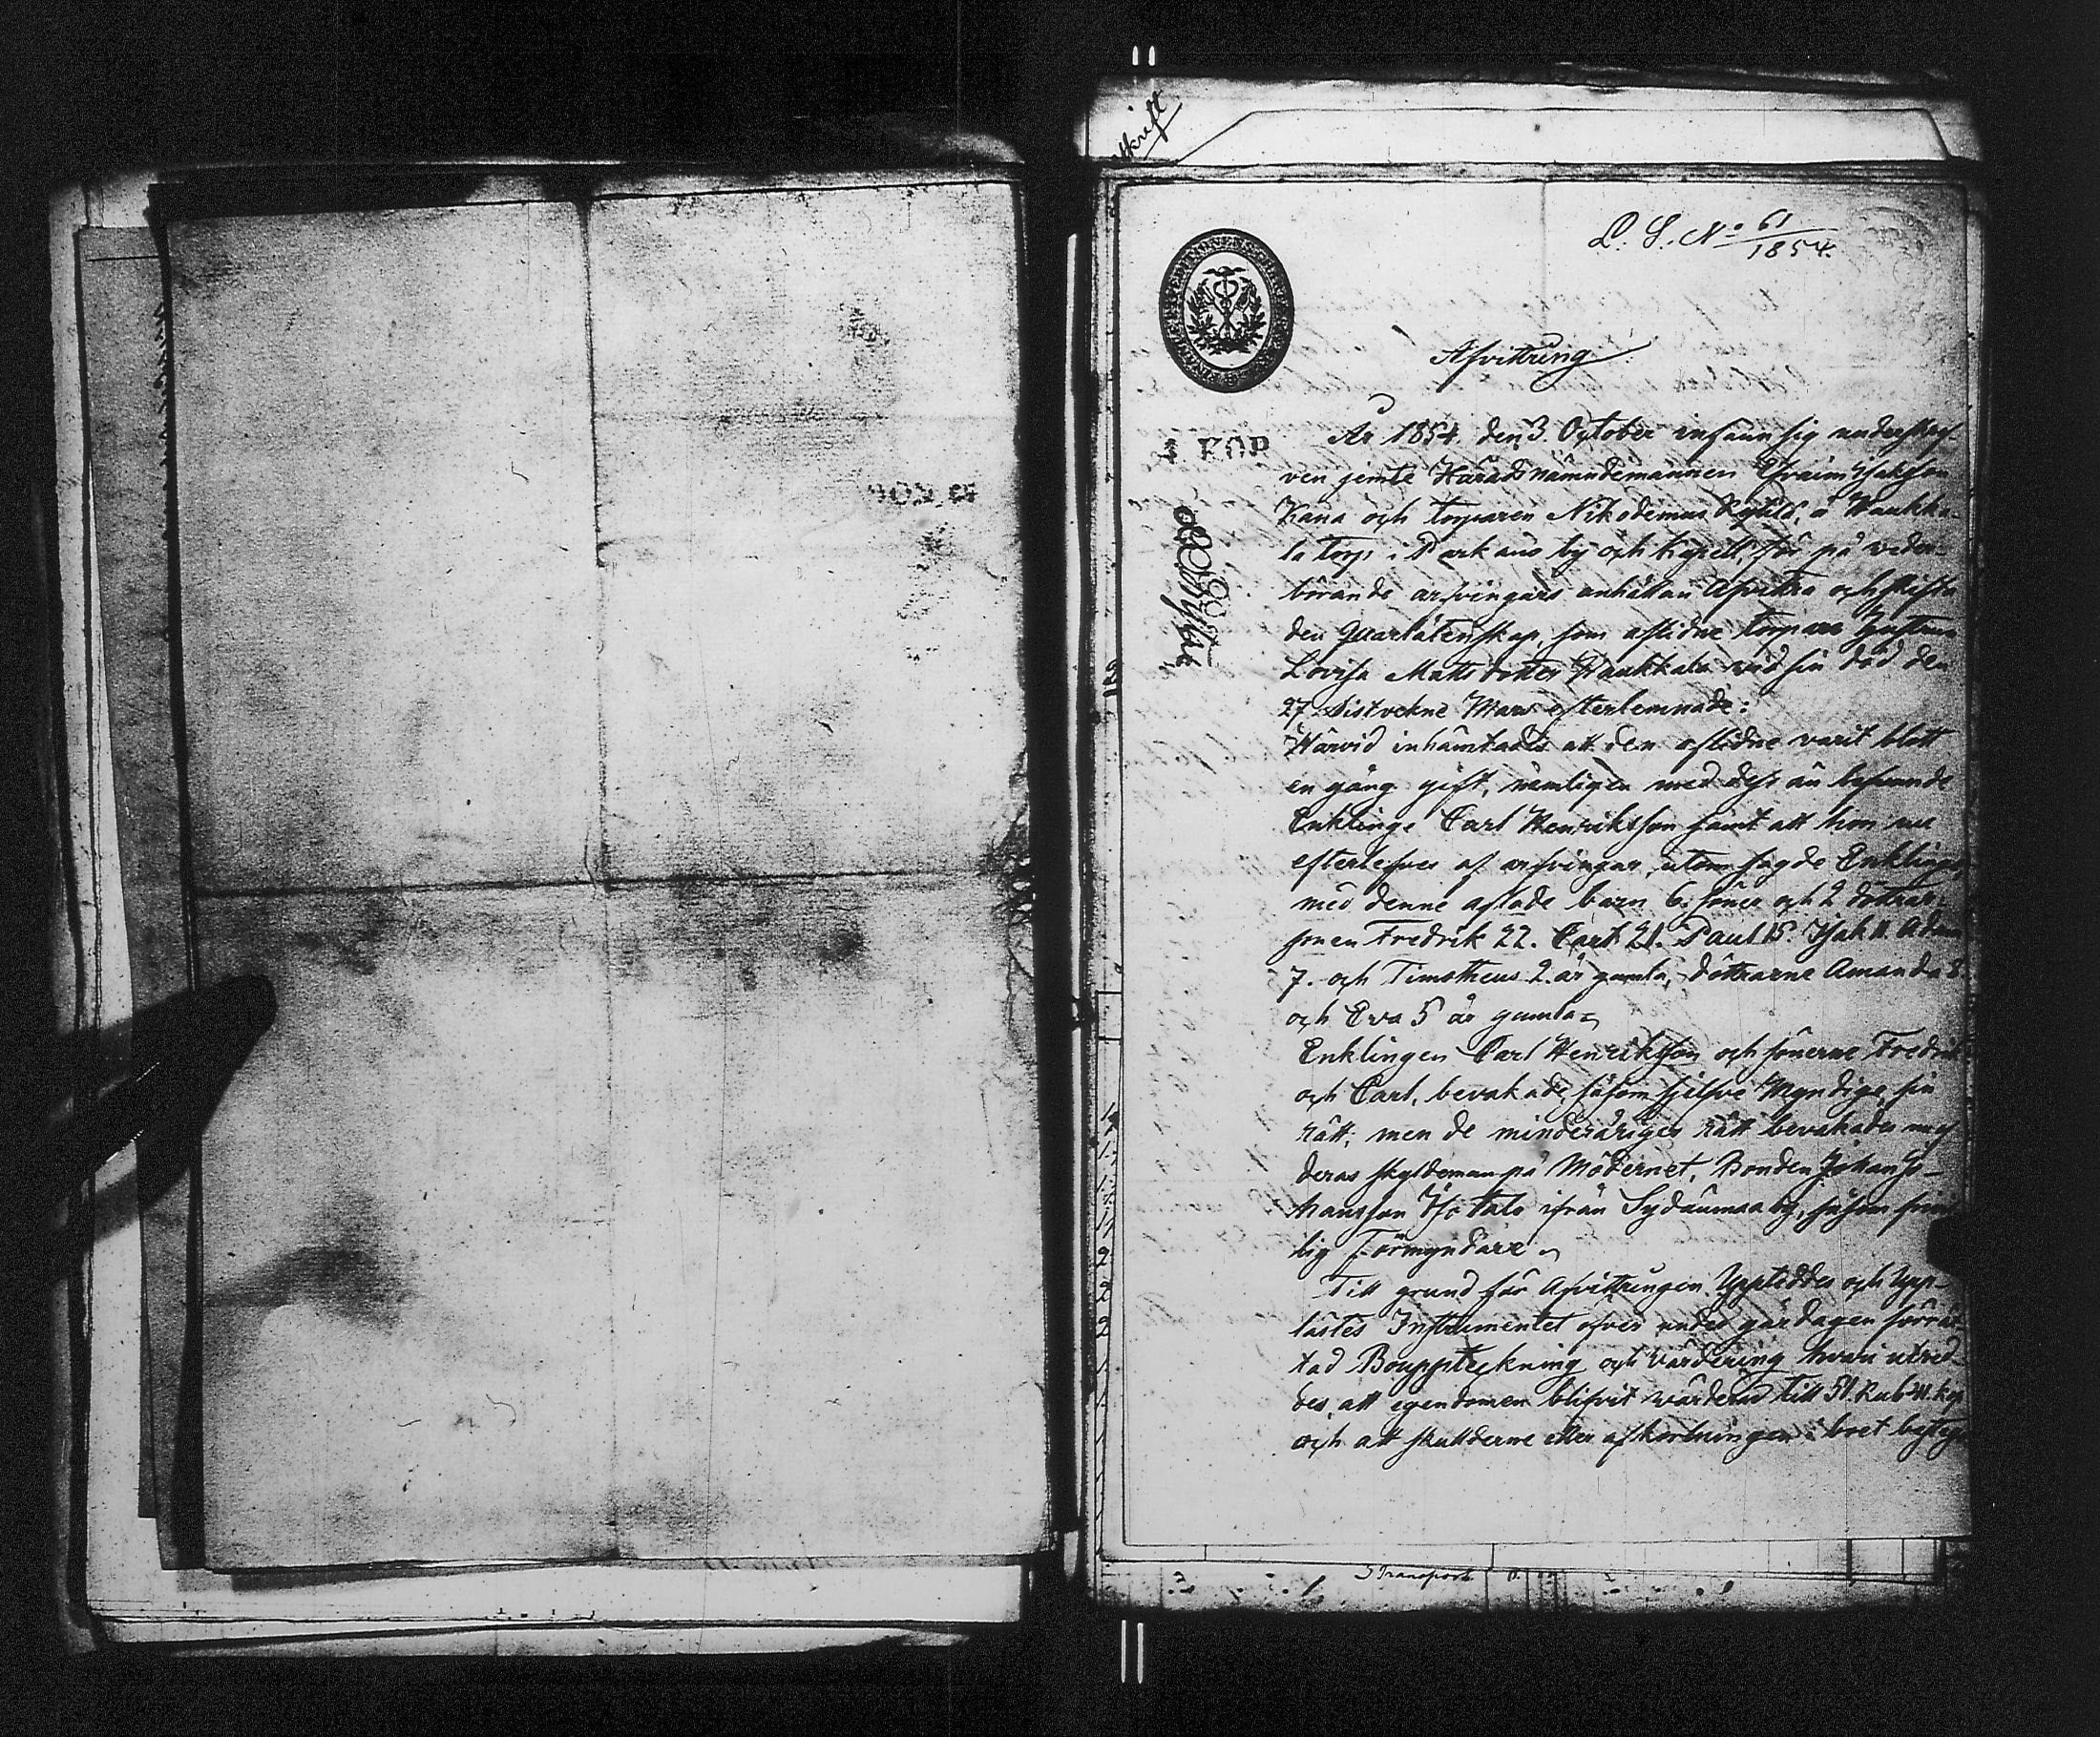 L. S. No 61
1854.
Afvittring
4 KOP
År 1854. den 3. October infann sig underskref-
ven jemte Häradsnämndemannen Efraim Isaksson
Kana och torparen Nikodemus å Haukka-
la torp i Parkano by och Kapell, för på veder-
börande arfvingars anhållan Afvittra och skifta
den Qvarlåtenskap, som aflidne torpare hustrun
Lovisa Matts dotter Haukkala vid sin död den
27. sistvekne Mars efterlemnade:
Härvid inhämtades att den aflidne varit blott
en gång gift, nemligen med dess än lefvande
Enklinge Carl Henriksson samt att hon nu
efterlefves af arfvingar, utom sagde Enklinge,
med denne aflade barn 6. söner och 2 döttrar:
sonen Fredrik 22. Carl 21. Paul 15. Isak 11. Adam
7. och Timotheus 2. år gamla, döttrarne Amanda 8.
och Eva 5 år gamla
Enklingen Carl Henriksson och sönerne Fredrik
och Carl, bevakade, såsom sjelfve Myndige, sin
rätt; men de minderåriges rätt bevakades af
deras skyldeman på Mödernet, Bonden Johan Jo-
hansson Isotalo ifrån Sydänmaa by, såsom
lig Förmyndare
Till grund för Afvittringen Uppteddes och Upp-
lästes Instrumentet öfver under gårdagen förrät-
tad Bouppteckning och värdering hvari utred-
des, att egendomen blifvit värderad till 51. Rub. 11. kop
och att skulderne eller afkortningen i boet bestego
Transport